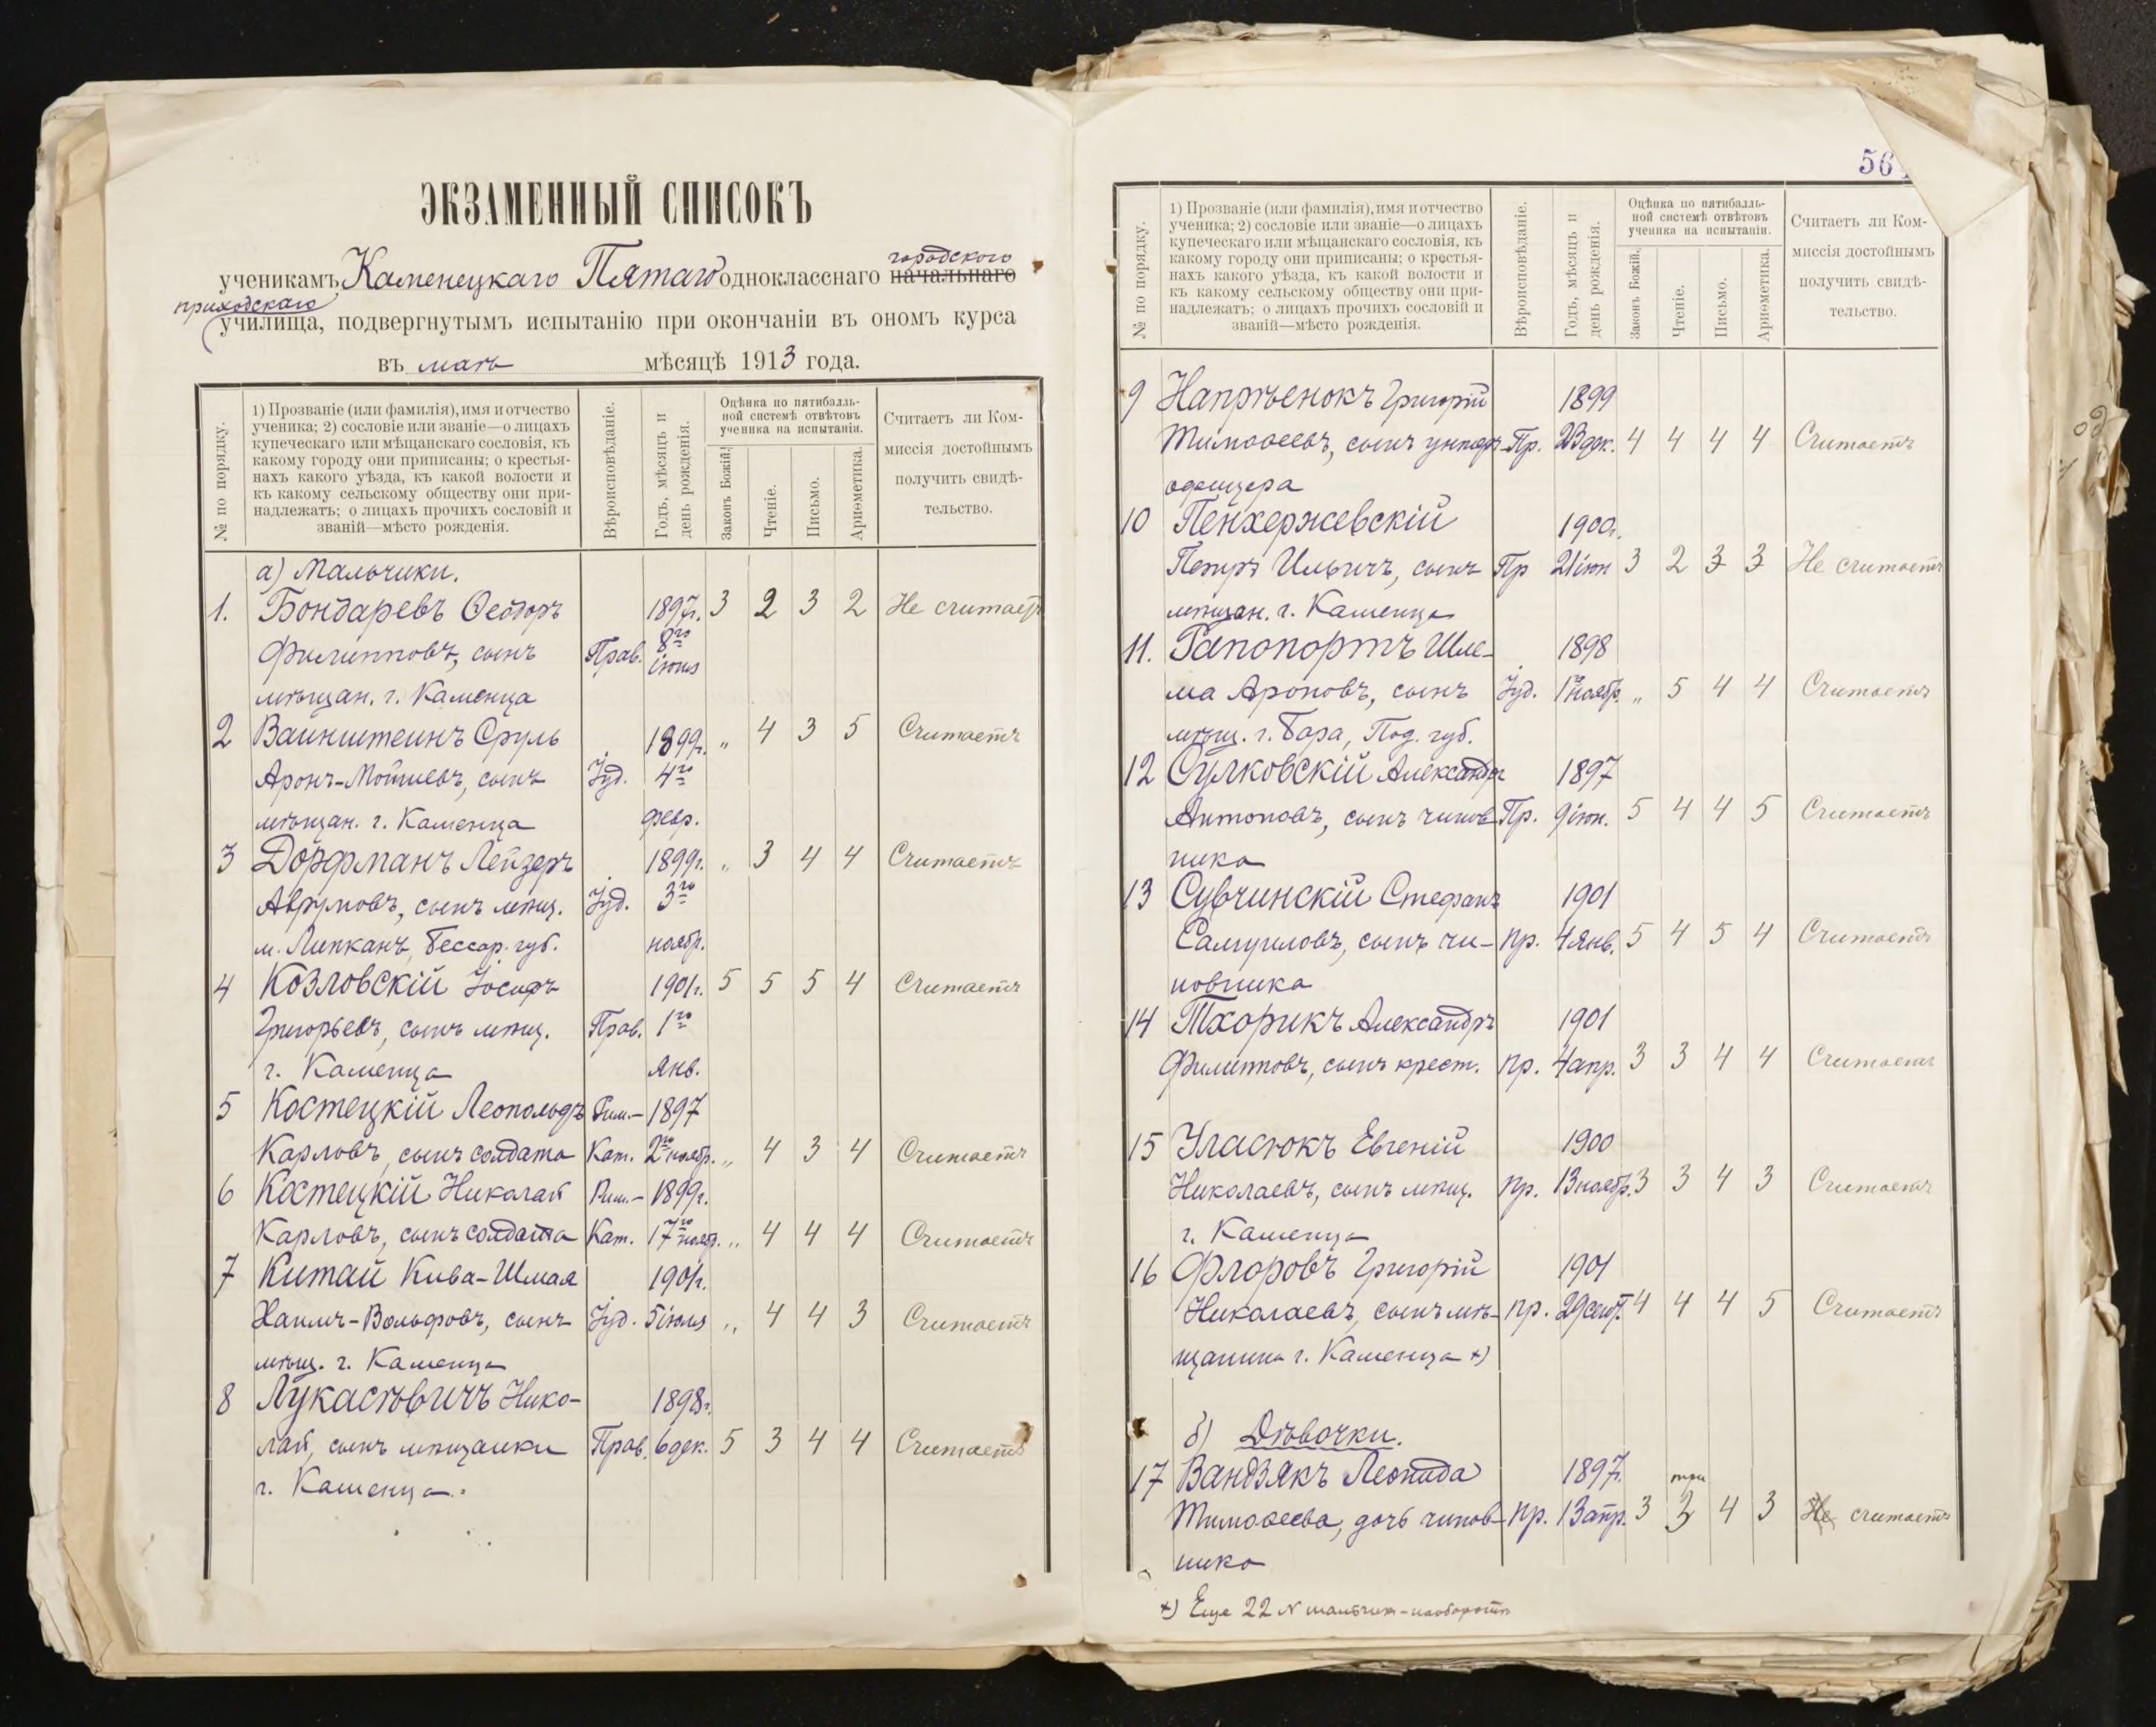 ЭКЗАМЕННЫЙ СПИСОКЪ
городского
ученикамъ Каменецкаго Пятаго одноклассного начальнаго
приходскаго
училища, подвергнутымъ испытанію при окончаніи въ ономъ курса
въ маѣ мѣсяцѣ 1913 года.
№ по порядку.
1) Прозваніе (или фамилія), имя и отчество
ученика; 2) сословіе или званіе—о лицахъ
купеческаго или мѣщанскаго сословія, къ
какому городу они приписаны; о крестья-
нахъ какого уѣзда, къ какой волости и
къ какому сельскому обществу они при-
надлежатъ; о лицахъ прочихъ сословій и
званій—мѣсто рожденія.
Вѣроисповѣданіе.
Годъ, мѣсяцъ и
день рожденія.
Оцѣнка по пятибалль-
ной системѣ отвѣтовъ
ученика на испытаніи.
Законъ Божій.
Чтеніе.
Письмо.
Ариѳметика.
Считаетъ ли Ком-
миссія достойнымъ
получить свидѣ-
тельство.
а) Мальчики.
1. Бондаревъ Ѳеодоръ 1897г. 3 2 3 2 Не считаетъ
Филипповъ, сынъ Прав. 8го іюня
мѣщан. г. Каменца
2 Ваинштеинъ Сруль 1899г. „ 4 3 5 Считаетъ
Аронъ-Мошиевъ, сынъ Іуд. 4го
мѣщан. г. Каменца февр.
3 Дорфманъ Лейзеръ 1899г. „ 3 4 4 Считаетъ
Аврумовъ, сынъ мѣщ. Іуд. 3го
м. Липканъ, Бессар. губ. ноябр.
4 Козловскій Іосифъ 1901г. 5 5 5 4 Считаетъ
Григорьевъ, сынъ мѣщ. Прав. 1го
г. Каменца янв.
5 Костецкій Леопольдъ Рим.- 1897
Карловъ, сынъ солдата Кат. 2го ноябр. „ 4 3 4 Считаетъ
6 Костецкій Николай Рим.- 1899г.
Карловъ, сынъ солдата Кат. 17го ноябр. „ 4 4 4 Считаетъ
7 Китай Кива-Шмая 1901г.
Хаимъ-Вольфовъ, сынъ Іуд. 5 іюля „ 4 4 3 Считаетъ
мѣщ. г. Каменца
8 Лукасѣвичъ Нико- 1898г.
лай, сынъ мѣщанки Прав. 6 дек. 5 3 4 4 Считаетъ
г. Каменца.
56
№ по порядку.
1) Прозваніе (или фамилія), имя и отчество
ученика; 2) сословіе или званіе—о лицахъ
купеческаго или мѣщанскаго сословія, къ
какому городу они приписаны; о крестья-
нахъ какого уѣзда, къ какой волости и
къ какому сельскому обществу они при-
надлежатъ; о лицахъ прочихъ сословій и
званій—мѣсто рожденія.
Вѣроисповѣданіе.
Годъ, мѣсяцъ и
день рожденія.
Оцѣнка по пятибалль-
ной системѣ отвѣтовъ
ученика на испытаніи.
Законъ Божій.
Чтеніе.
Письмо.
Ариѳметика.
Считаетъ ли Ком-
миссія достойнымъ
получить свидѣ-
тельство.
9 Напрѣенокъ Григорій 1899
Тимоѳеевъ, сынъ унтеръ- Пр. 23 дек. 4 4 4 4 Считаетъ
офицера
10 Пенхержевскій 1900г.
Петръ Ильичъ, сынъ Пр 21 іюн 3 2 3 3 Не считаетъ
мѣщан. г. Каменца
11. Рапопортъ Шле- 1898
ма Ароновъ, сынъ Іуд. 1го ноябр. „ 5 4 4 Считаетъ
мѣщ. г. Бара, Под. губ.
12 Сулковскій Александръ 1897
Антоновъ, сынъ чинов- Пр. 9 іюн. 5 4 4 5 Считаетъ
ника
13 Сувчинскій Стефанъ 1901
Самуиловъ, сынъ чи- пр. 4 янв. 5 4 5 4 Считаетъ
новника
14 Тхорикъ Александръ 1901
Филипповъ, сынъ крест. пр. 4 апр. 3 3 4 4 Считаетъ
15 Уласюкъ Евгеній 1900
Николаевъ, сынъ мѣщ. пр. 13 ноябр. 3 3 4 3 Считаетъ
г. Каменца
16 Флоровъ Григорій 1901
Николаевъ, сынъ мѣ- пр. 29 сент. 4 4 4 5 Считаетъ
щанина г. Каменца +)
б) Дѣвочки.
17 Вандзякъ Леонида 1897г. три
Тимоѳеева, дочь чинов- пр. 13 апр. 3 3 4 3 Не считаетъ
ника
+) Еще 22 № мальчик-наоборотъ